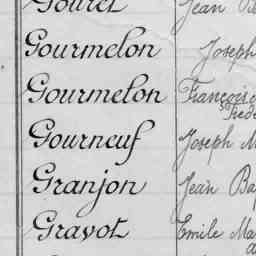 Gouret Jean
Gourmelon Joseph
Gourmelon François
Gourneuf Joseph M
Granjon Jean Bap
Gravot Emile Ma